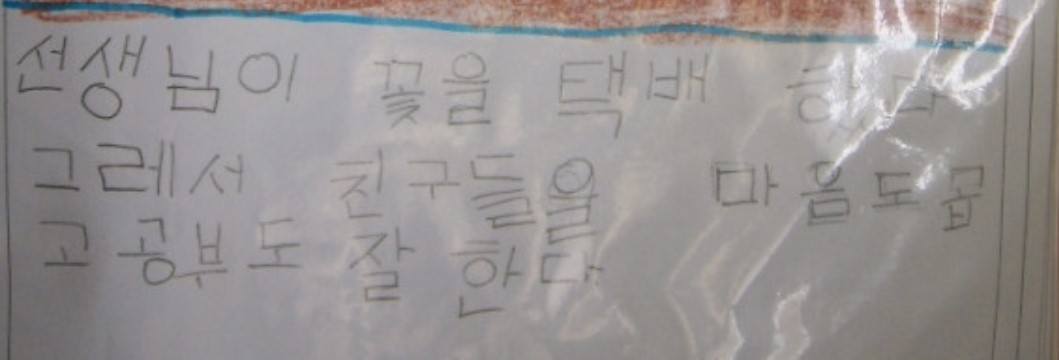 선생님이 꽃을 택배 했다
그레서 친구들을 마음도곱
고 공부도 잘 한다.